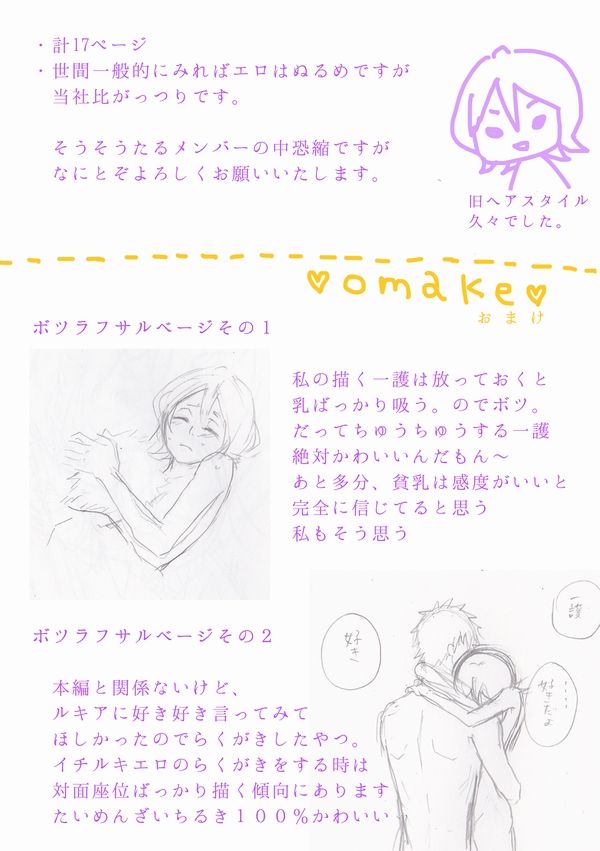 ・計17ページ
・世間一般的にみればエロはぬるめですが
当社比がっつりです。
そうそうたるメンバーの中恐縮ですが
なにとぞよろしくお願いいたします。
旧ヘアスタイル
久々でした。
♡omake♡
おまけ
ボツラフサルベージその１
私の描く一護は放っておくと
乳ばっかり吸う。のでボツ。
だってちゅうちゅうする一護
絶対かわいいんだもん～
あと多分、貧乳は感度がいいと
完全に信じてると思う
私もそう思う
ボツラフサルベージその２
本編と関係ないけど、
ルキアに好き好き言ってみて
ほしかったのでらくがきしたやつ。
イチルキエロのらくがきをする時は
対面座位ばっかり描く傾向にあります
たいめんざいちるき１００％かわいい
一護
好き
……
好きだよ